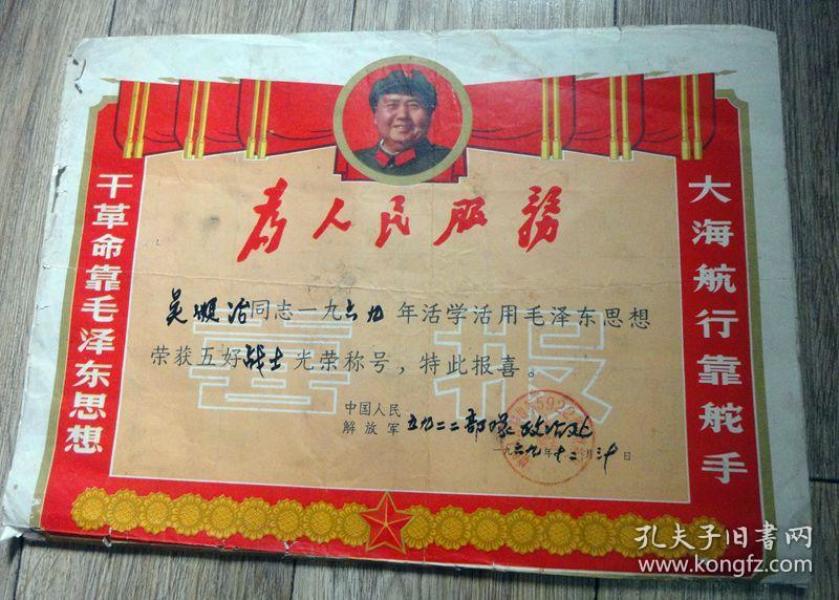 为人民服務
大海航行靠舵手
干革命靠毛泽东思想
喜报
吴顺冶同志一九六九年活学活用毛泽东思想
荣获五好战士光荣称号，特此报喜。
中国人民
解放军五九二二部队政治处
一九六九年十二月三十日
5922
孔夫子旧书网
www.kongfz.com